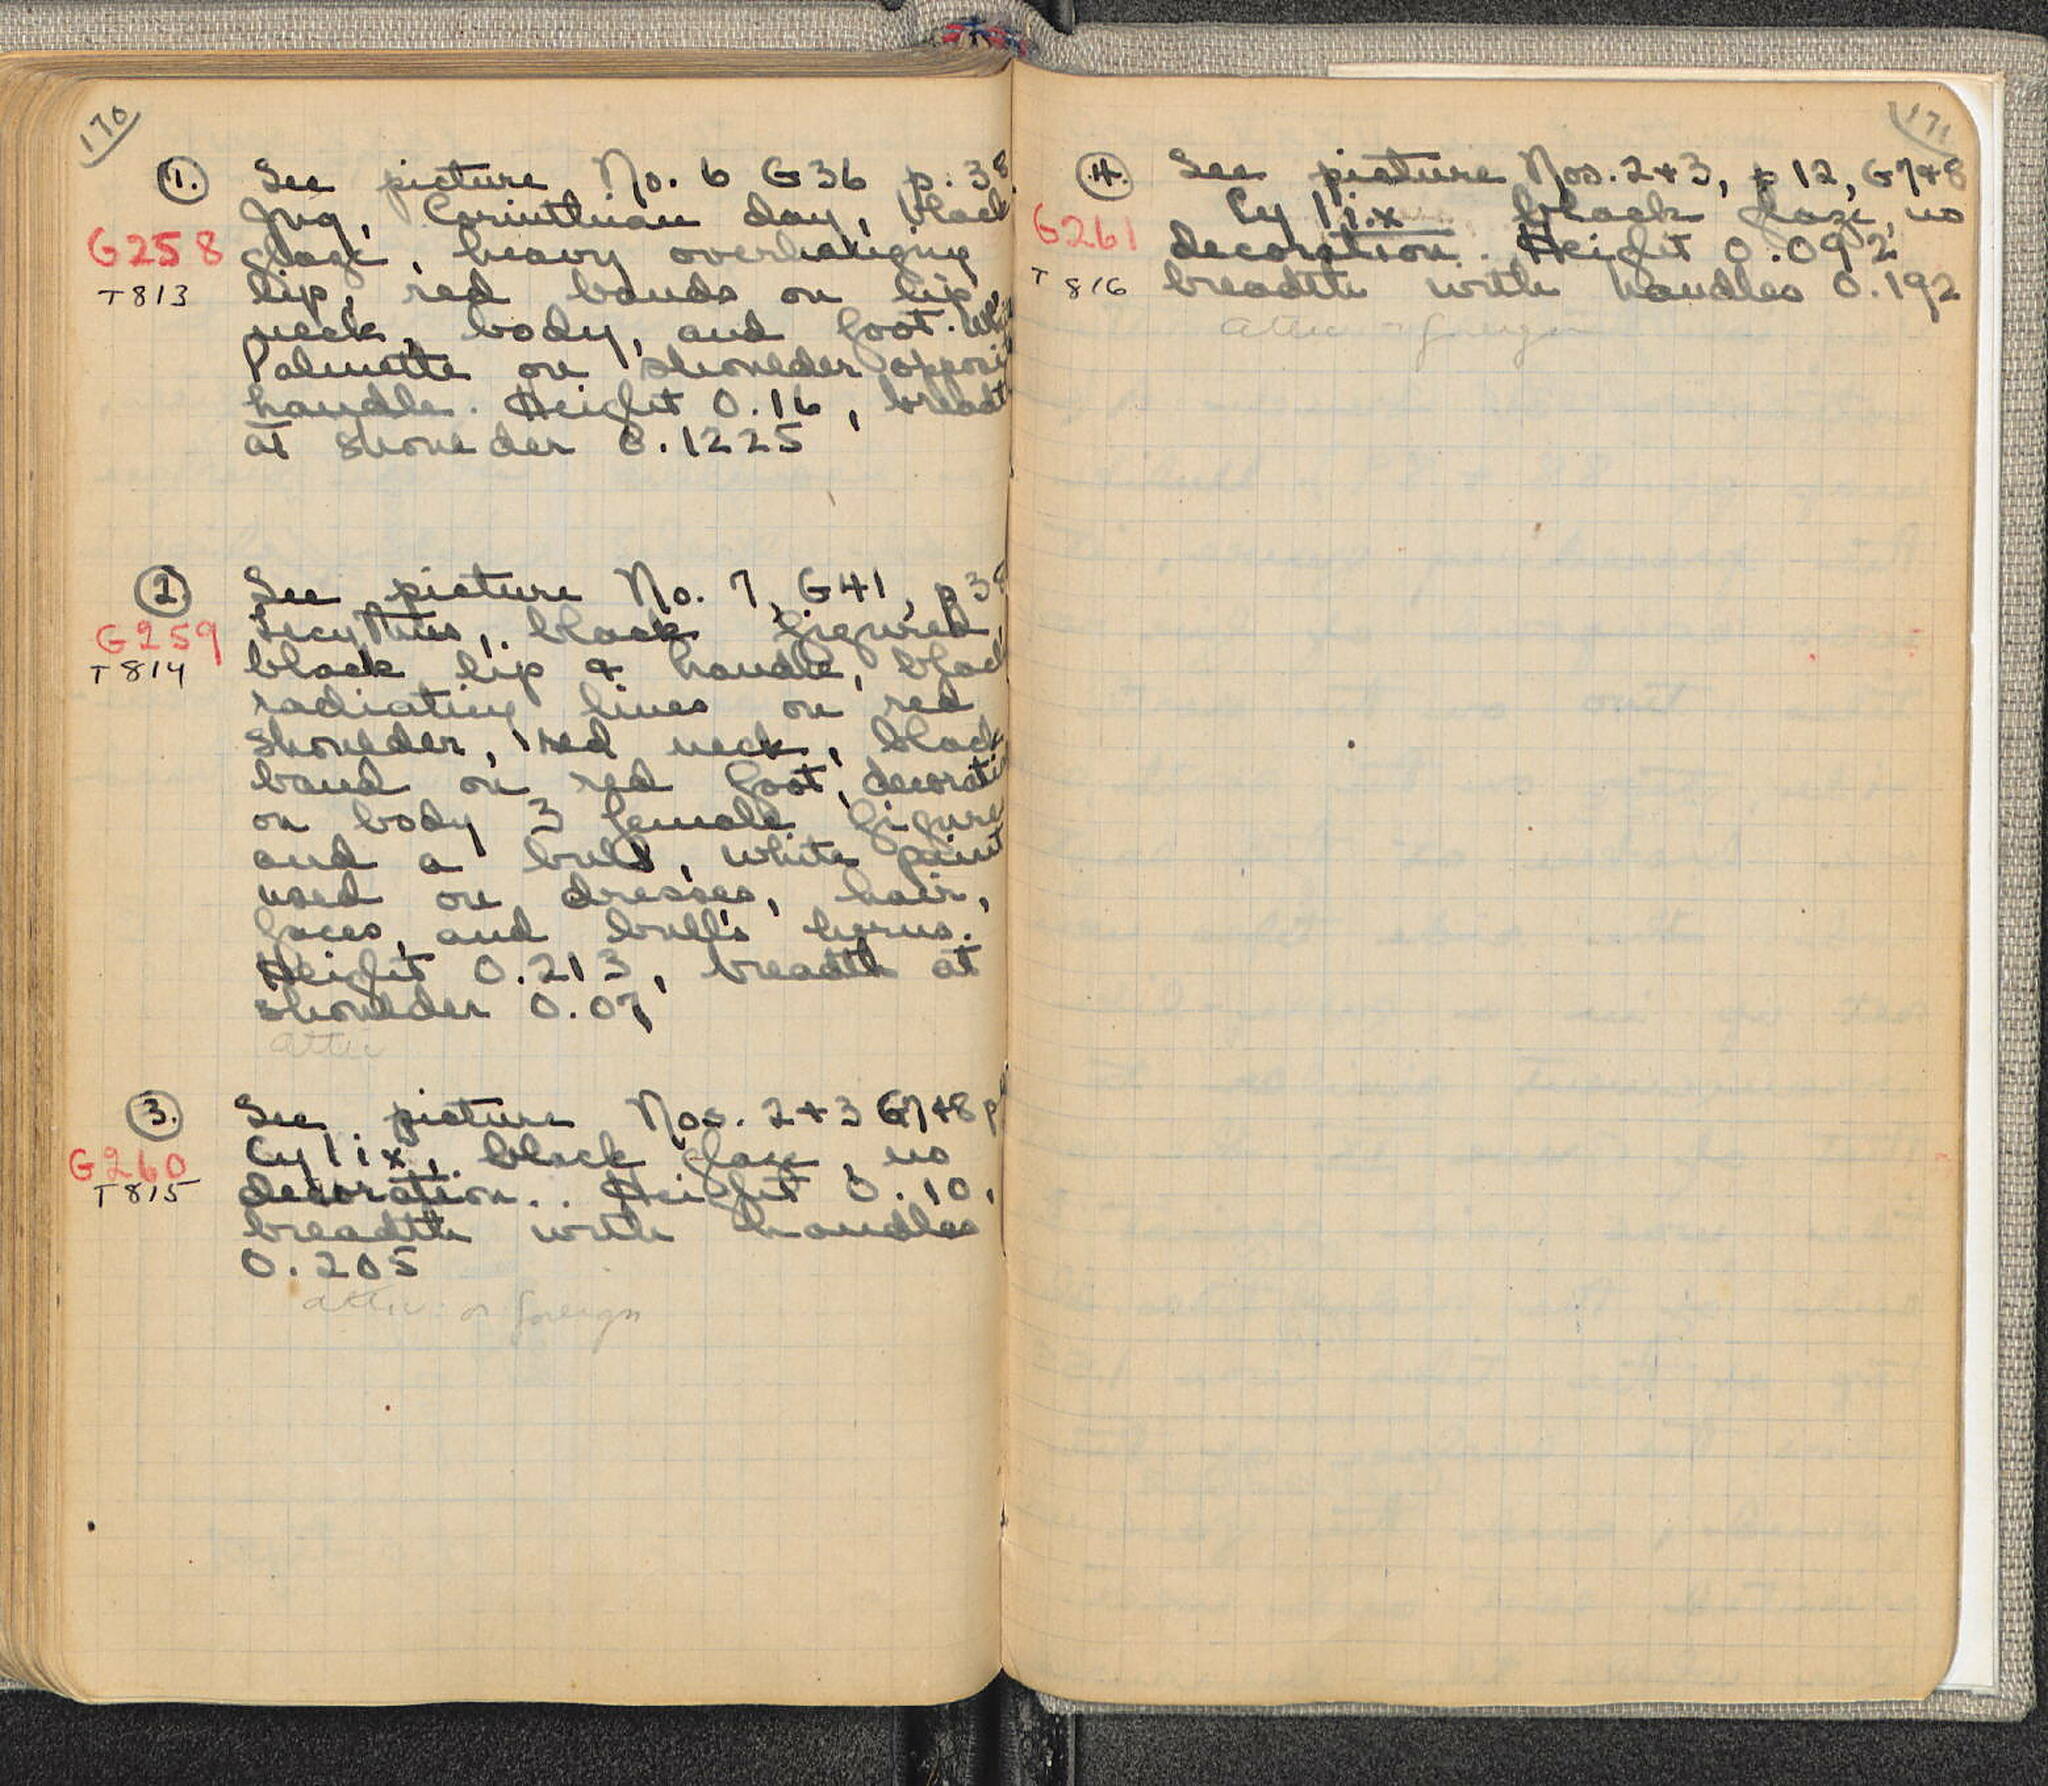 170
1. See picture No. 6 G36 p. 38
Jug, Corinthian clay, black
G258 glaze, heavy overhanging
T813 lip, red bands on lip,
neck, body, and foot.
Palmette on shoulder opposite
handle. Height 0.16, breadth
at shoulder 0.1225
2. See picture No. 7, G41, p 38
G259 Lecythus, black figured,
T814 black lip & handle, black
radiating lines on red
shoulder, red neck, black
band on red foot, decoration
on body 3 female figures
and a bull, white paint
used on dresses, hair,
faces, and bull's horns.
Height 0.213, breadth at
shoulder 0.07
Attic
3. See picture Nos. 2+3 G7+8 p
G260 Cylix, black glaze, no
T815 decoration. Height 0.10,
breadth with handles
0.205
Attic or foreign
171
4. See picture Nos. 2+3, p 12, G7+8
G261 Cylix black glaze, no
decoration. Height 0.092
T816 breadth with handles 0.192
Attic or foreign